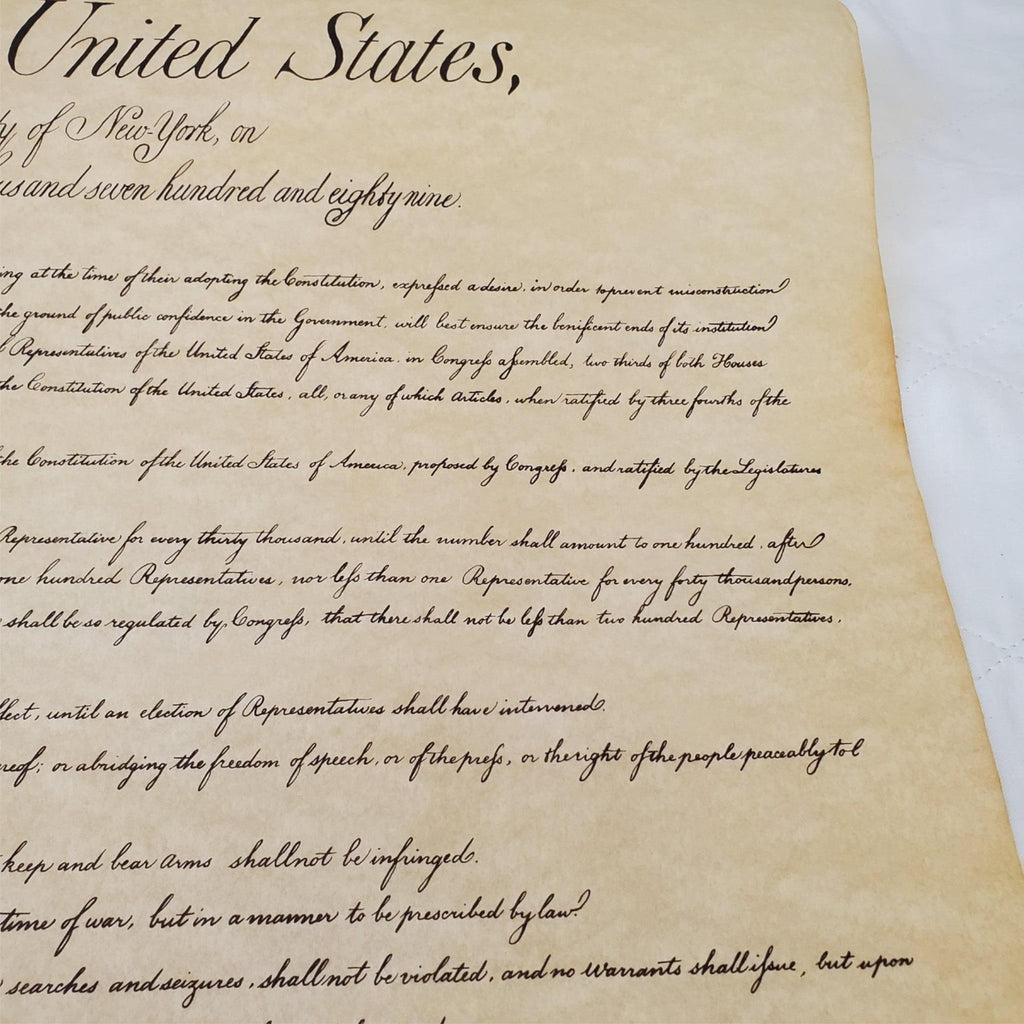 United States,
ty of New-York, on
usand seven hundred and eighty nine.
ing at the time of their adopting the Constitution, expressed a desire, in order to prevent misconstruction
the ground of public confidence in the Government, will best ensure the benificent ends of its institution
Representatives of the United States of America, in Congress assembled, two thirds of both Houses
the Constitution of the United States, all, or any of which Articles, when ratified by three fourths of the
the Constitution of the United States of America, proposed by Congress, and ratified by the Legislatures
Representative for every thirty thousand, until the number shall amount to one hundred, after
one hundred Representatives, nor less than one Representative for every forty thousand persons,
shall be so regulated by Congress, that there shall not be less than two hundred Representatives,
ffect, until an election of Representatives shall have intervened.
reof; or abridging the freedom of speech, or of the press, or the right of the people peaceably to
keep and bear arms shall not be infringed.
time of war, but in a manner to be prescribed by law.
searches and seizures, shall not be violated, and no Warrants shall issue, but upon